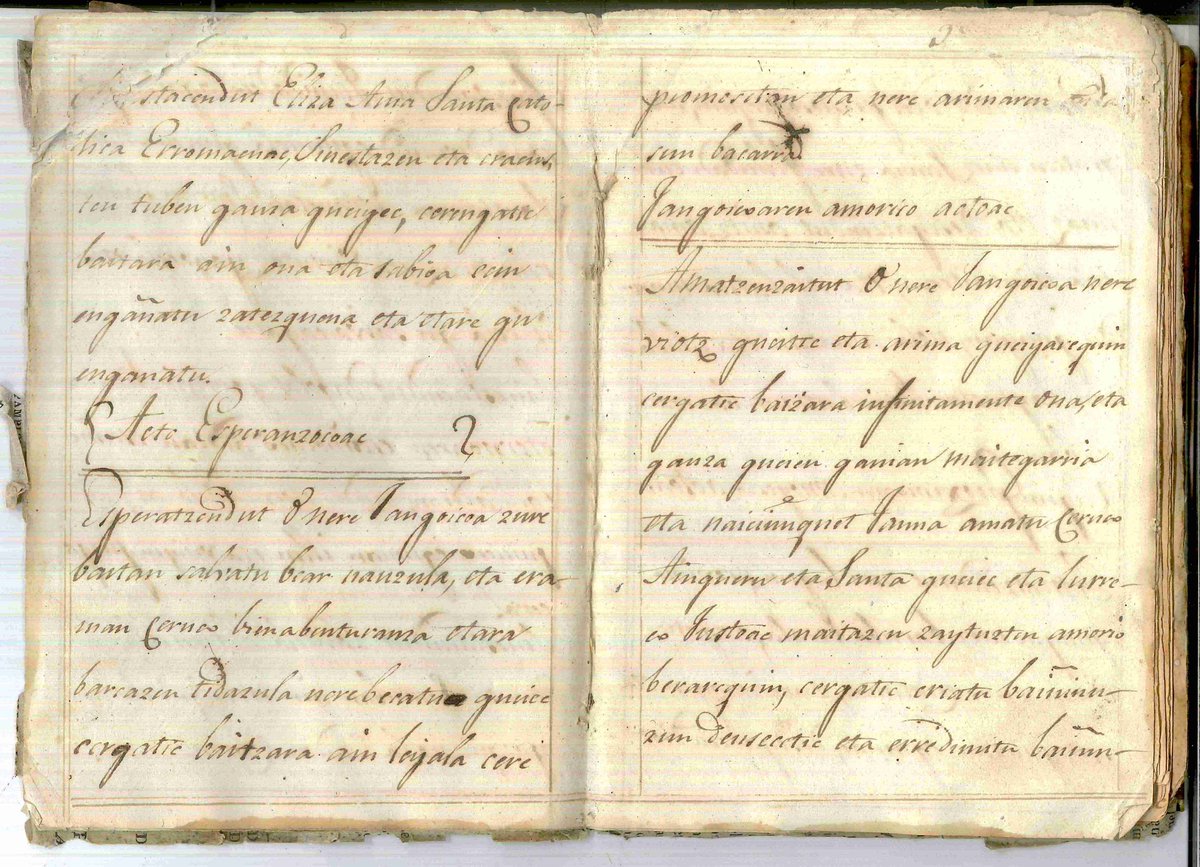 stacendut Eliza Ama Santa Cato-
lica Erromaenac, Sinestazen eta
ten tuben gauza gueigec, cerengatic
baitara ain ona eta sabioa ecin
engañatu zatezquena eta etare gu
enganatu.
Acto Esperanzocoac
Esperatzendut O nere Jangoicoa zure
baitan salvatu bear nauzula, eta era-
man Ceruco bienabenturanza etara
barcazen didazula nere becatu gueiec
cergatic baitzara ain leyala cere
2
promesitan eta nere arimaren
sun bacarra
Jangoicoaren amorico actoac
Amatzenzaitut O nere Jangoicoa nere
viotz gucitic eta arima gueigarequin
cergatic baizara infinitamente ona, eta
gauza gucien ganian maitegarria
eta naiciũnquet Jauna amatu Ceruco
Ainguern eta Santa gueiec eta lurre-
co Justoac maitazen zaytuzten amorio
berarequin, cergatic criatu baiũnu-
zun deusectic eta erredimitu baiũn-